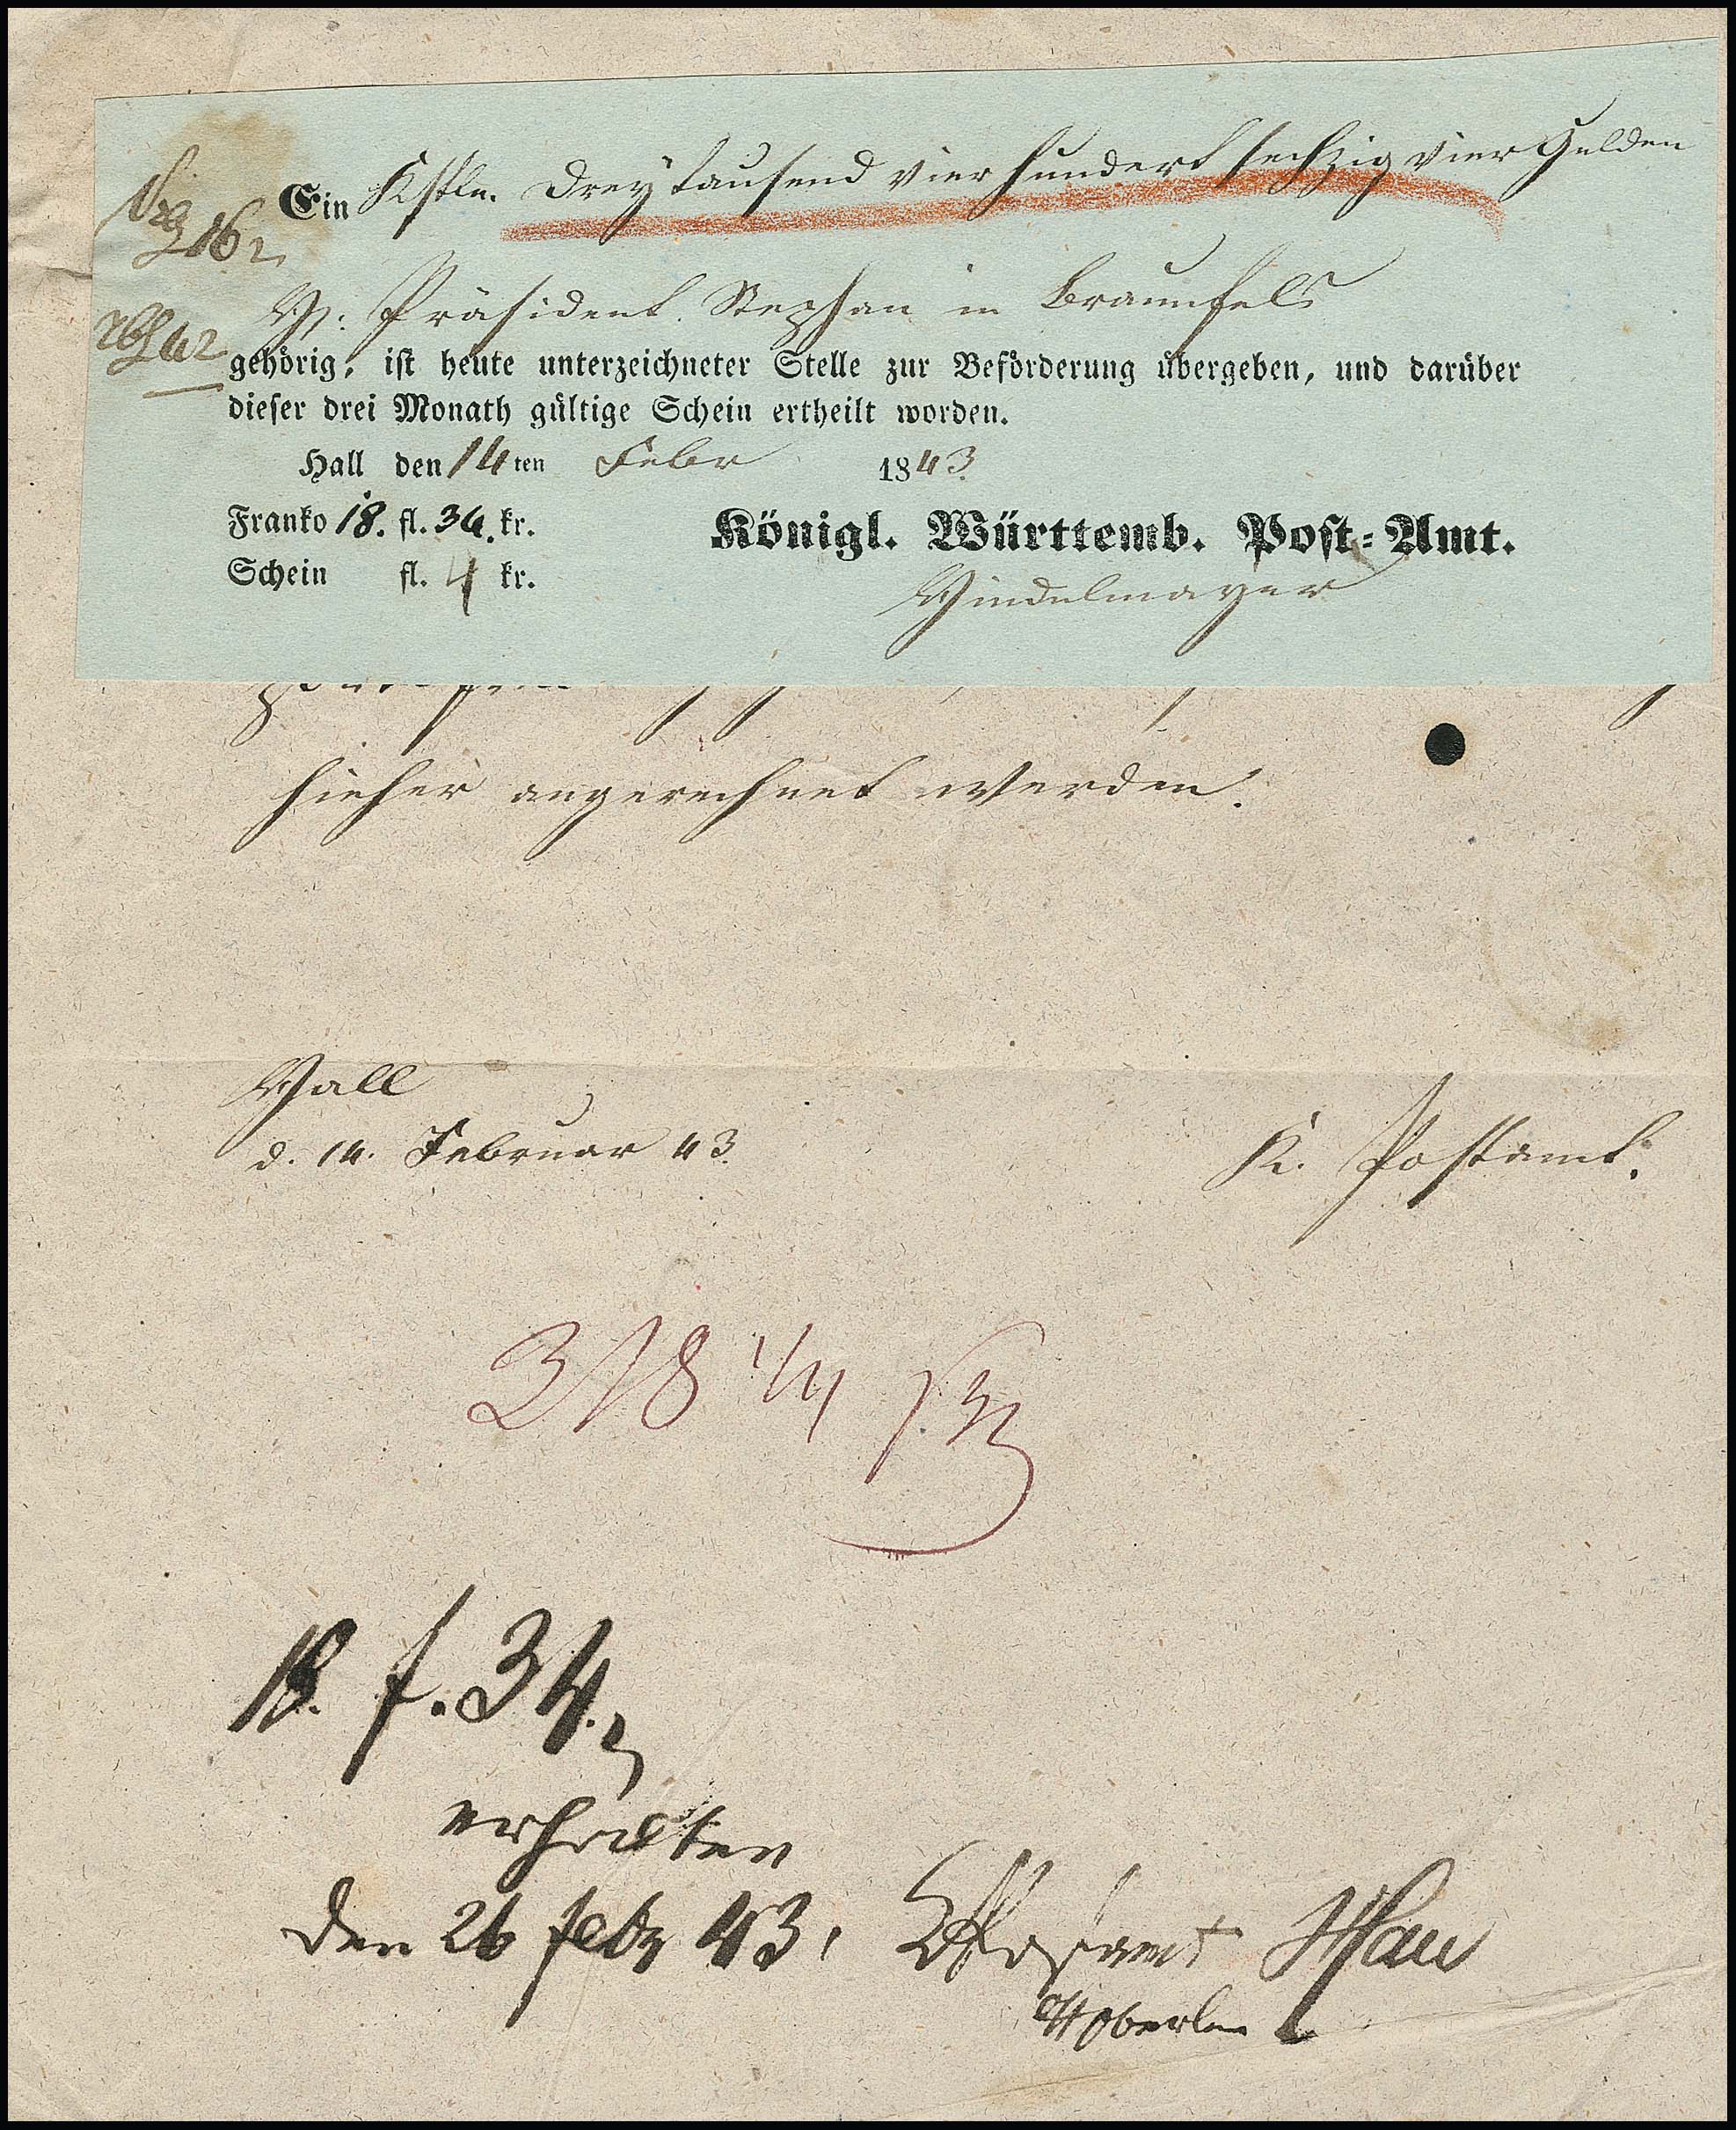 Ein Kstln. Dreytausend vierhundert sechzig vier Gulden
H: Präsident Stephan in Braunfels
gehörig, iſt heute unterzeichneter Stelle zur Beförderung übergeben, und darüber
dieſer drei Monath gültige Schein ertheilt worden.
Hall den 14ten Febr 1843.
Franko 18. fl. 34. kr.
Königl. Württemb. Poſt-Amt.
Schein fl. 4 kr.
hieher angerechnet werden.
Hall
d. 14. Februar 43.
K. Postamt.
18. f. 34.
erhalten
den 26 febr 43.